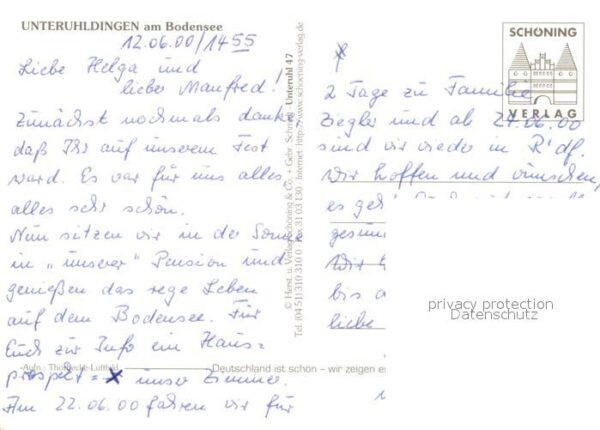 UNTERUHLDINGEN am Bodensee
12.06.00/14 55
Liebe Helga und
lieber Manfred!
Zunächst nochmals danke
daß Ihr auf unserem Fest
ward. Es war für uns alles,
alles sehr schön.
Nun sitzen wir in der Sonne
in "unserer" Pension und
genießen das rege Leben
auf dem Bodensee. Für
Euch zur Info ein Haus=
prospekt = x unser Zimmer.
Am 22.06.00 fahren wir für
Aufn.: Thorbecke-Luftbild
Deutschland ist schön – wir zeigen es
© Herst. u. Verlag Schöning & Co. + Gebr. Schmidt · Unteruhl 47
Tel. (04 51) 310 310 0 · Fax 31 03 130 · Internet: http://www.schoening-verlag.de
SCHÖNING
VERLAG
2 Tage zu Familie
Ziegler und ab 24.06.00
sind wir wieder in R'df.
Wir hoffen und wünschen,
es geh
gesun
Wir
bis
liebe
privacy protection
Datenschutz